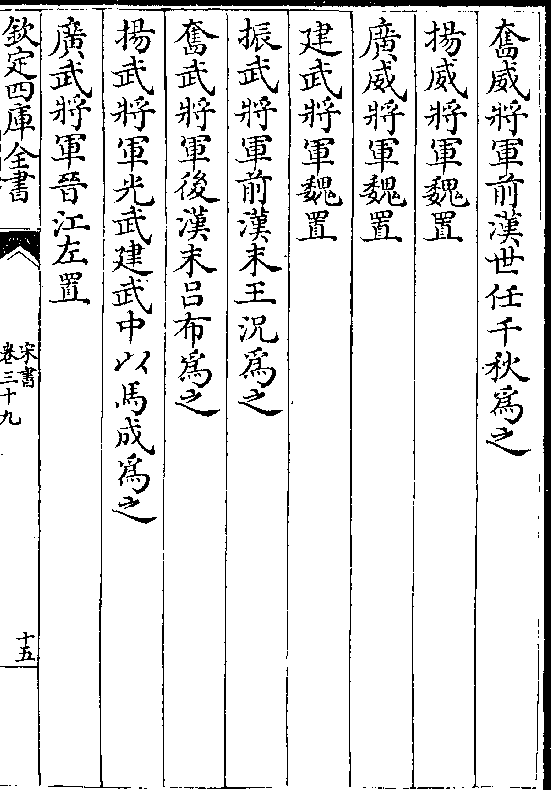 奮威將軍前漢世任千秋爲之
揚威將軍魏置
廣威將軍魏置
建武將軍魏置
振武將軍前漢末王況爲之
奮武將軍後漢末吕布爲之
揚武將軍光武建武中以馬成爲之
廣武將軍晉江左置
欽定四庫全書
宋書
卷三十九
十五